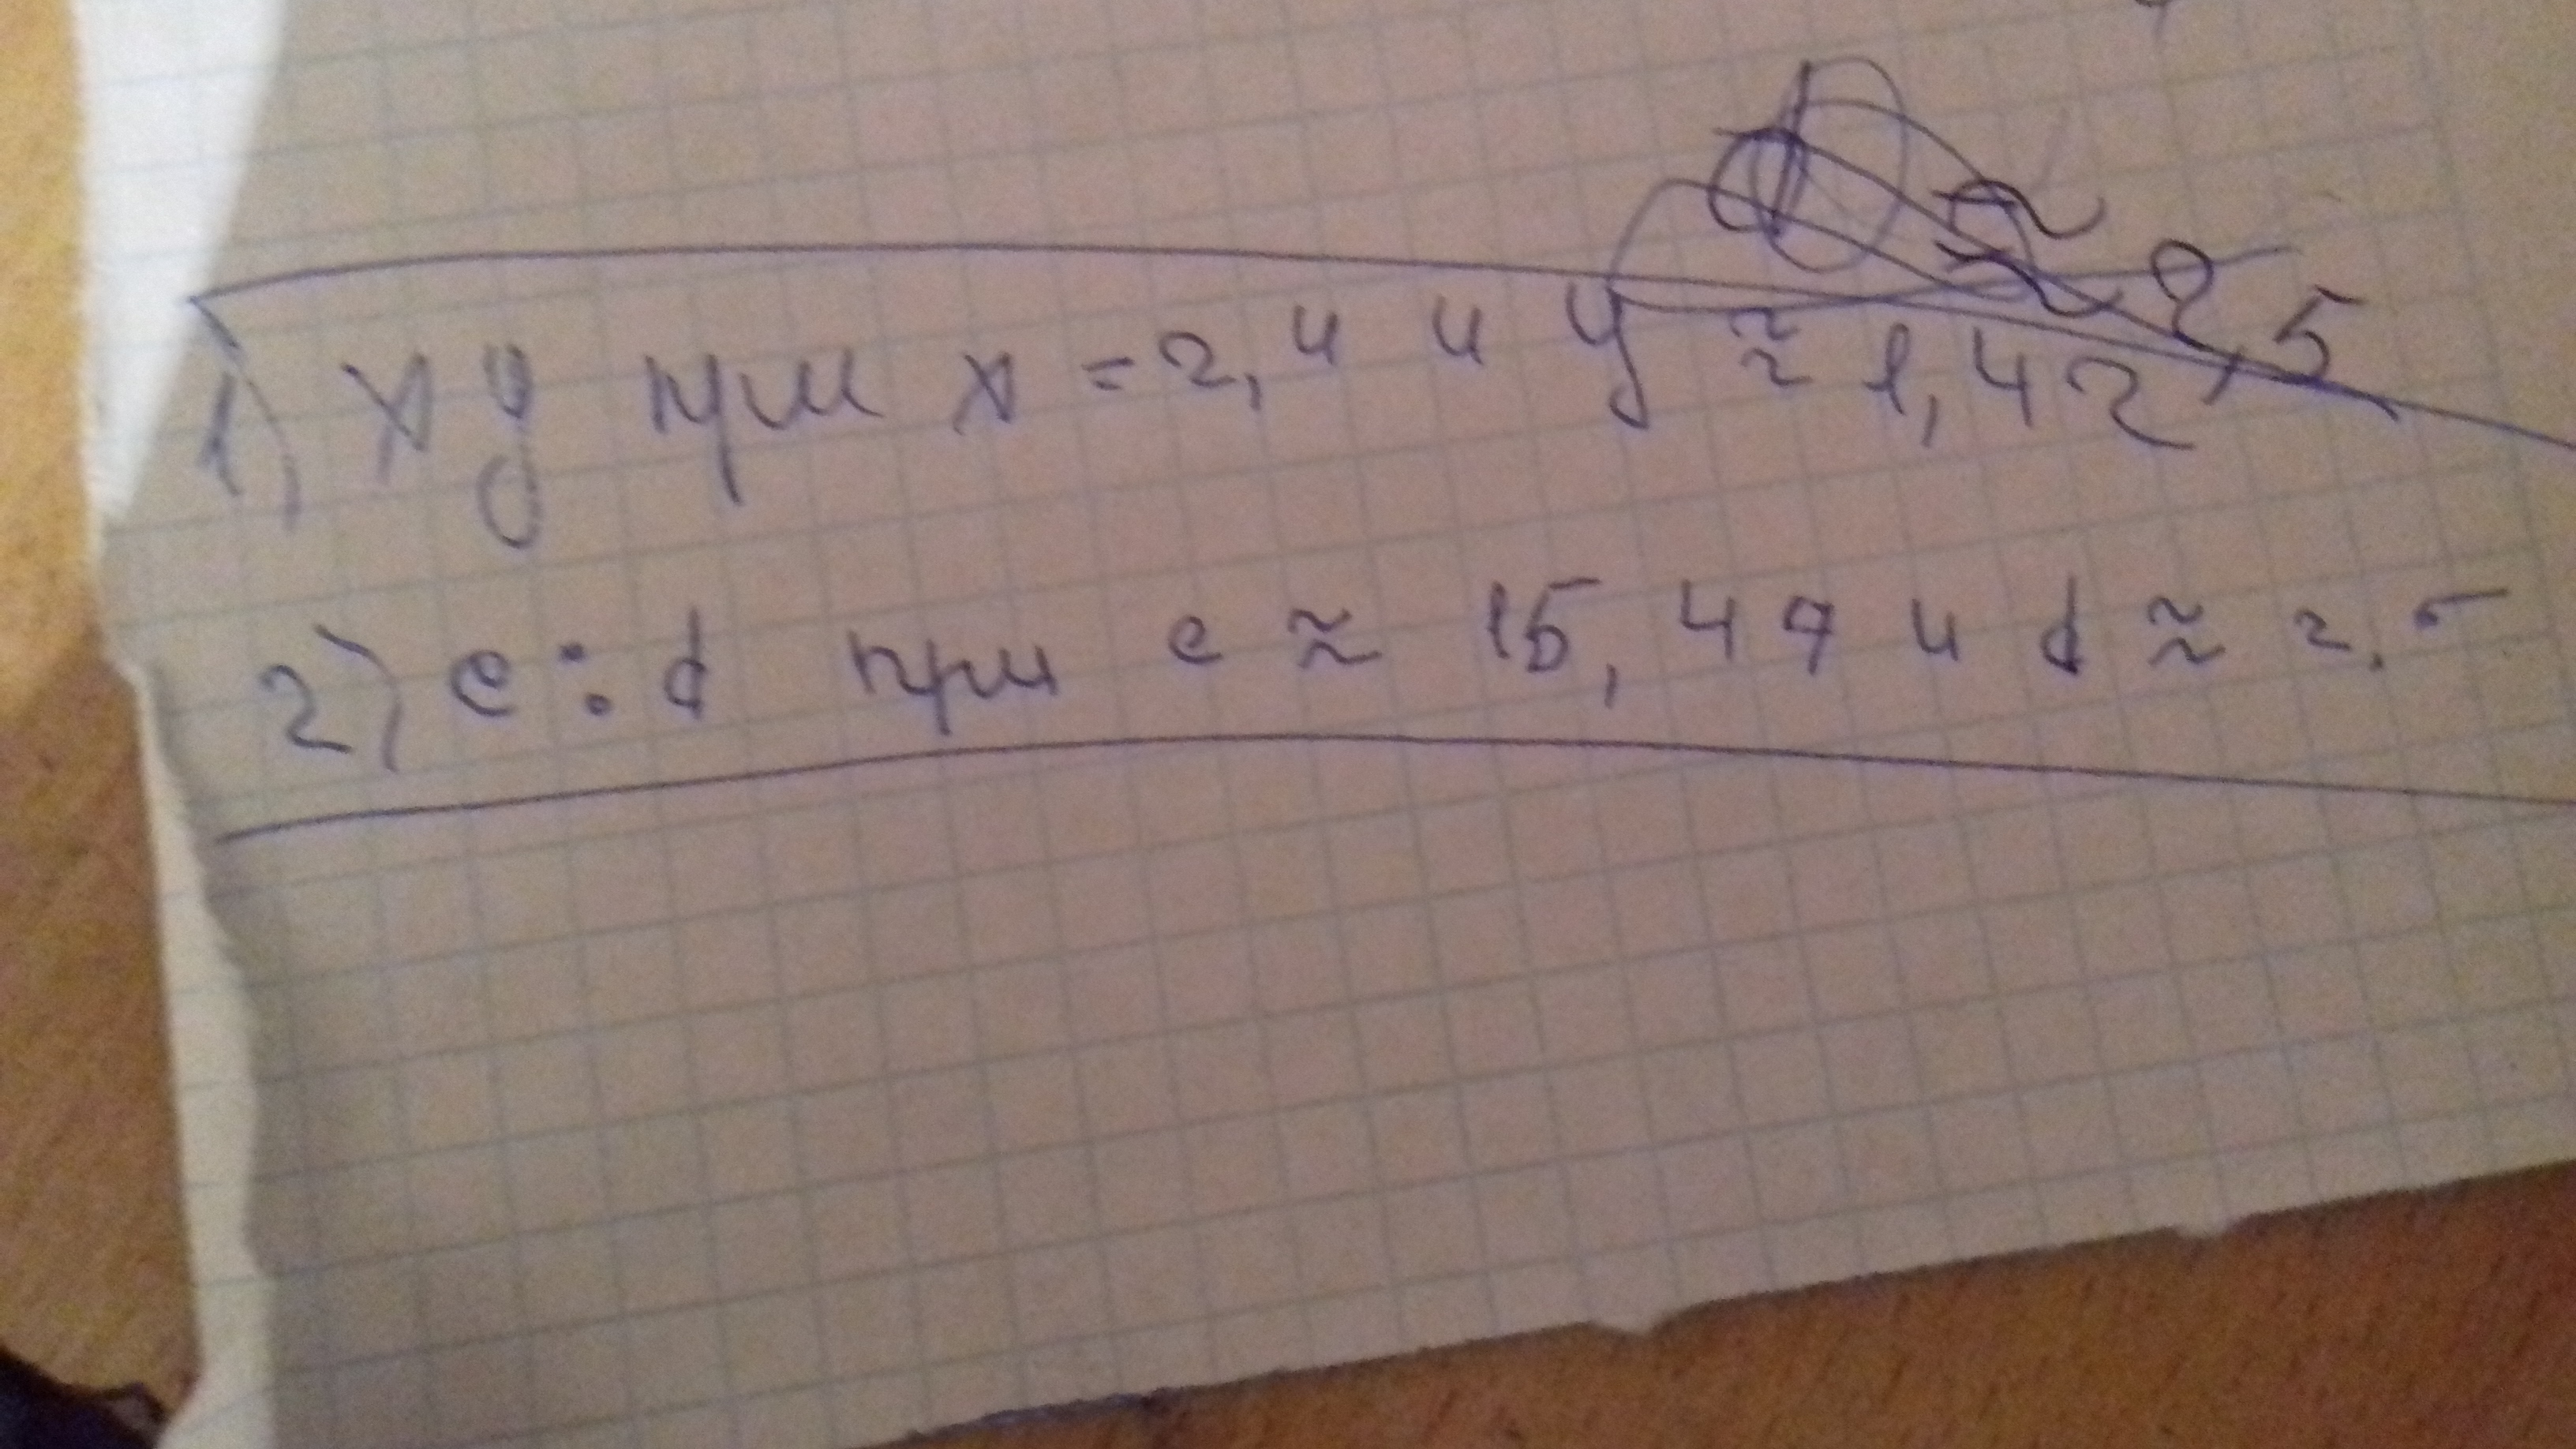 ≈
≈ 2,5
1) xy при x = 2,4 и y ≈ 1,42
2) c : d при c ≈ 15,49 и d ≈ 2,5